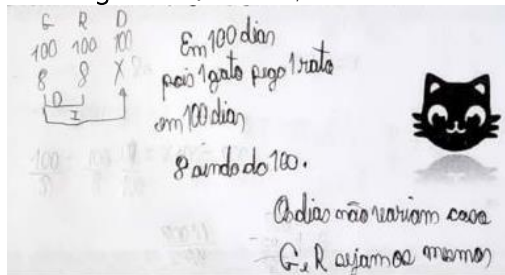 G R D
100 100 100
8 8 X
D
I
Em 100 dias
pois 1 gato pega 1 rato
em 100 dias
8 ainda do 100.
Os dias não variam caso
G e R sejam os mesmos